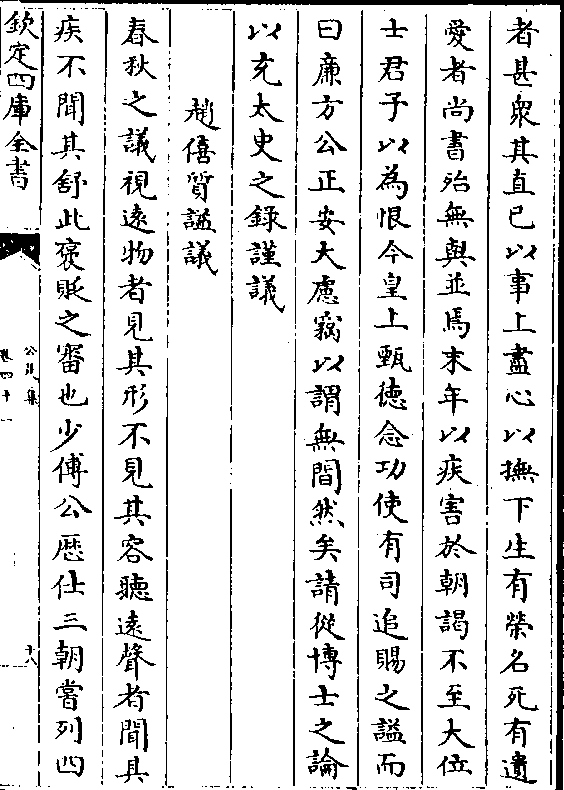 者甚衆其直已以事上盡心以撫下生有榮名死有遺
愛者尚書殆無與並焉末年以疾害於朝謁不至大位
士君子以為恨今皇上甄德念功使有司追賜之謚而
曰廉方公正安大慮竊以謂無間然矣請從博士之論
以充太史之録謹議
趙僖質謚議
春秋之議視遠物者見其形不見其容聽遠聲者聞其
疾不聞其舒此褒貶之審也少傅公歴仕三朝嘗列四
欽定四庫全書
公是集
卷四十一
十八